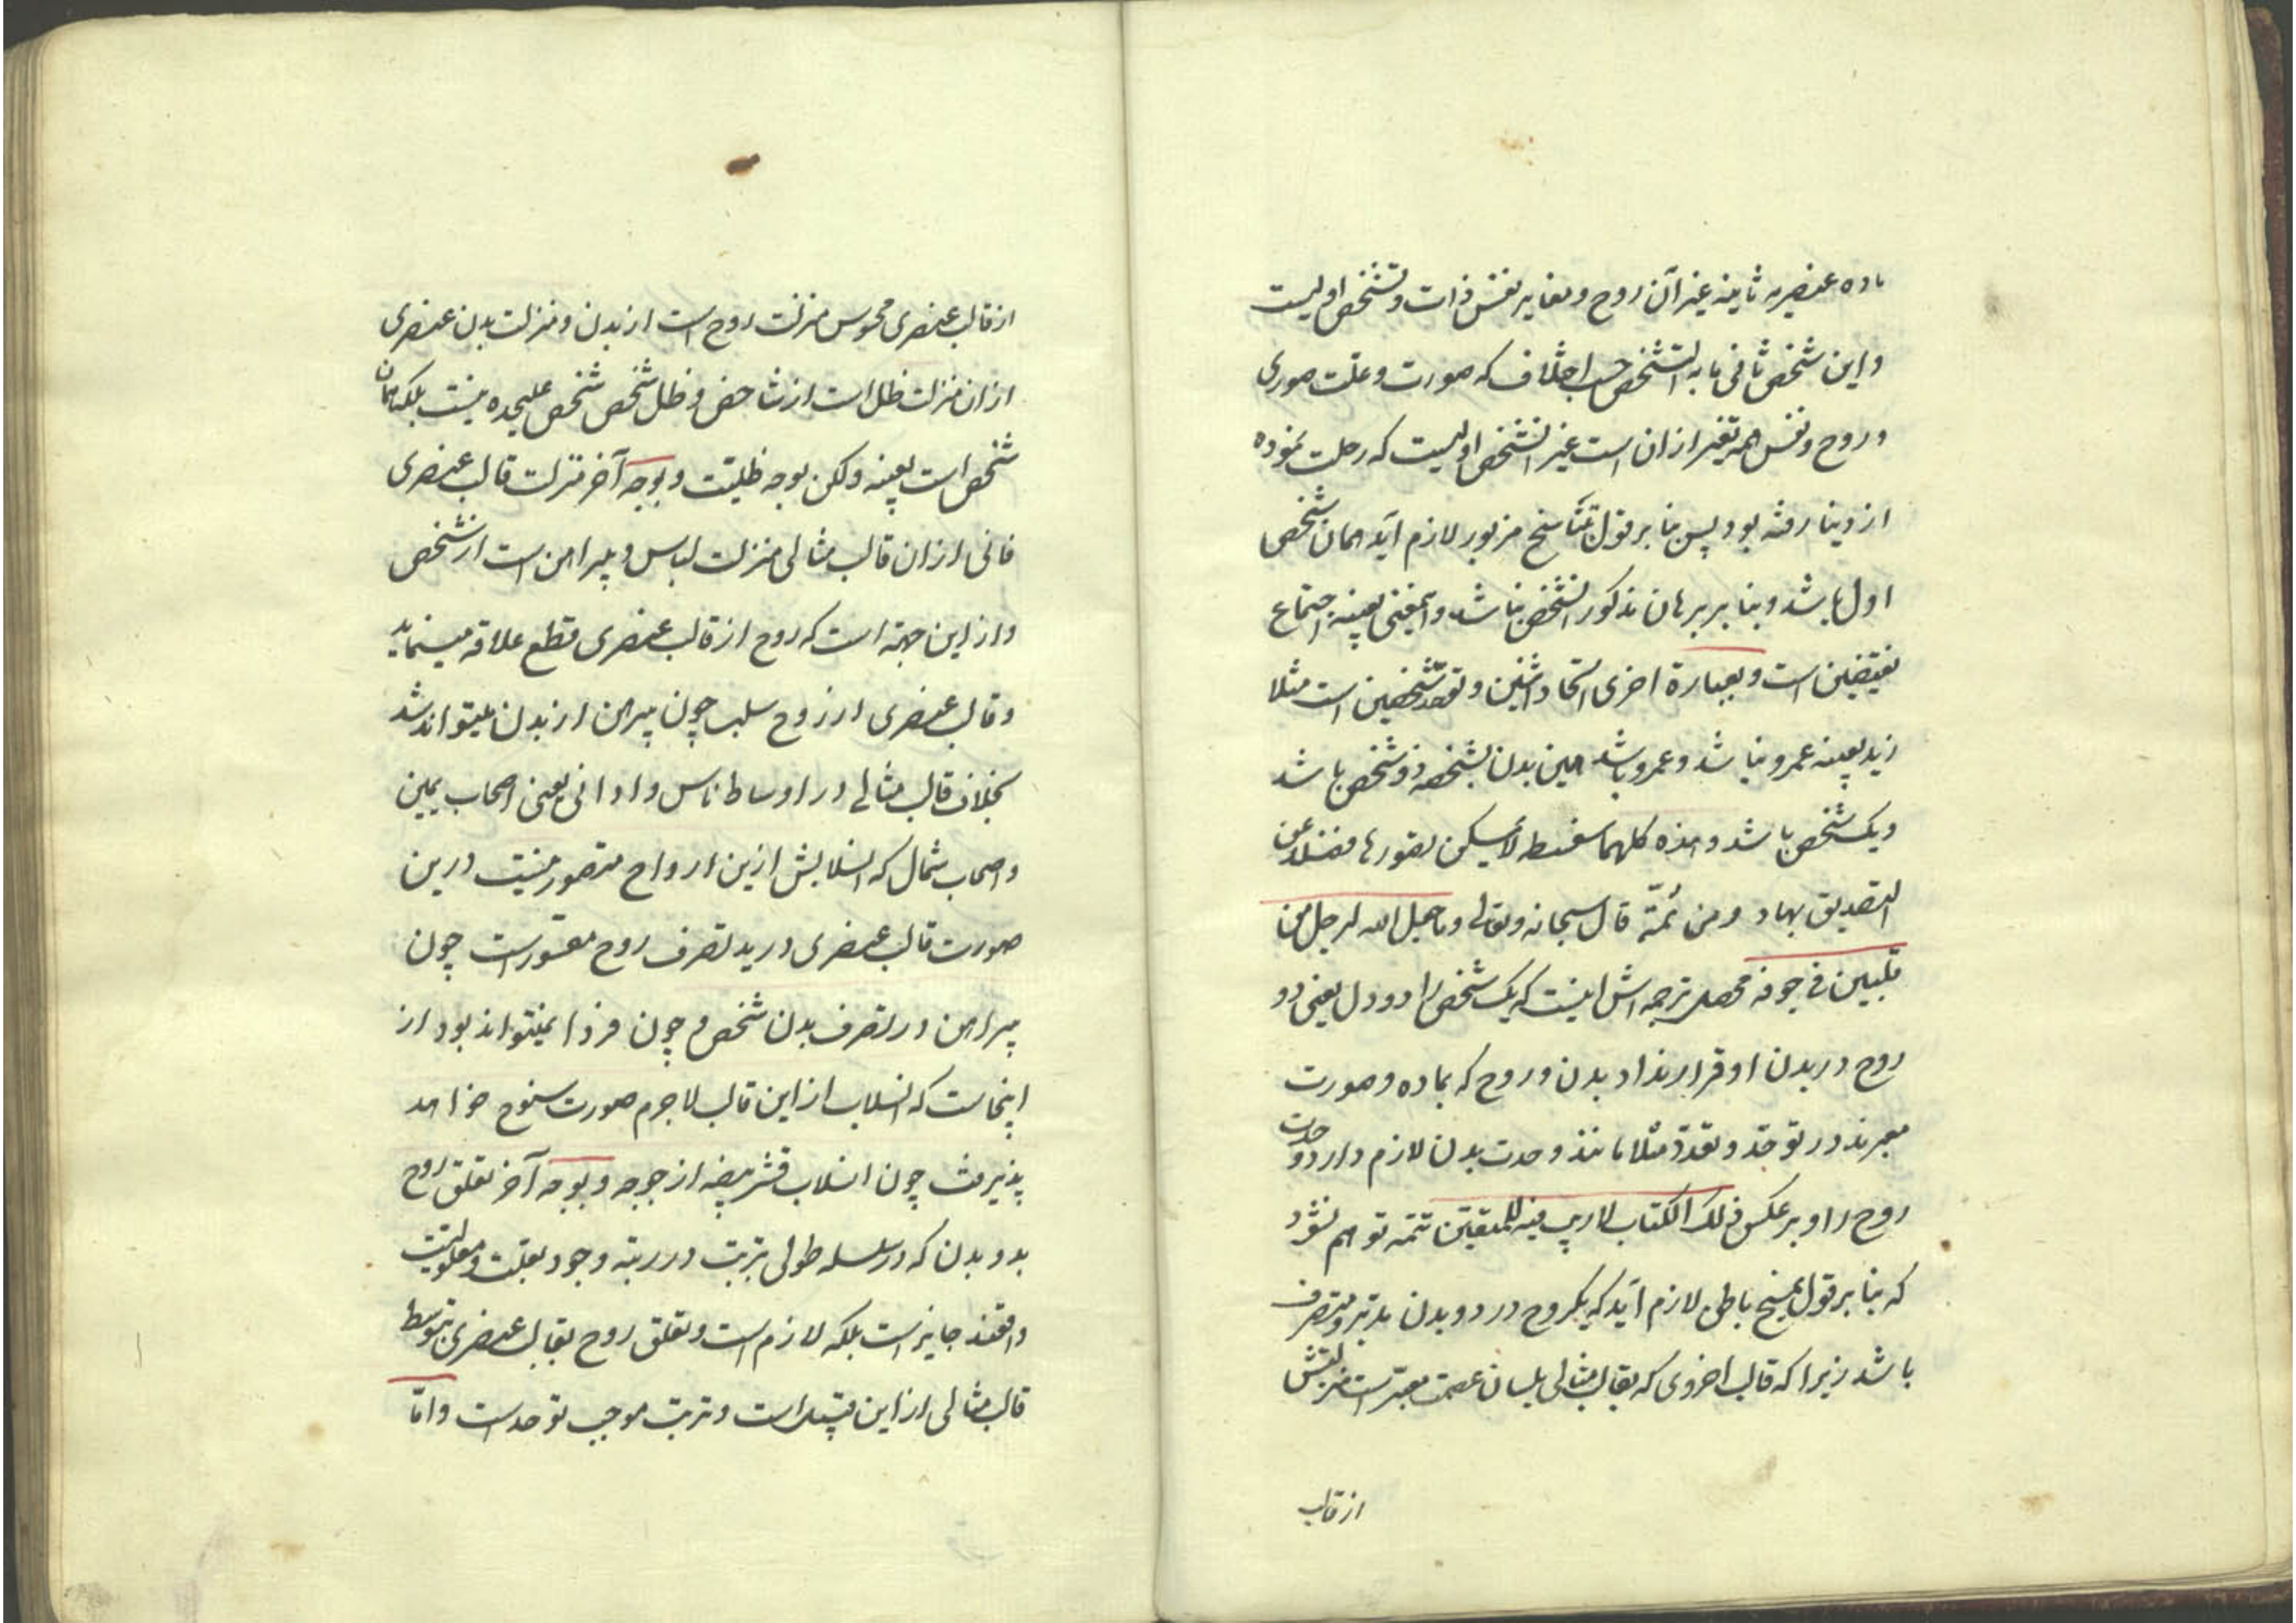 ماده عنصریه ثانیه غیر آن روح و مغایر نفس ذات و تشخص اولیست
و این شخص ثانی ما به التشخص حسب اختلاف که صورت و علت صوری
و روح و نفس همه تعبیر از ان است غیر الشخص اولیست که رحلت نموده
از دنیا رفته بود پس بنا بر قول تناسخ مزبور لازم آید همان شخص
اول باشد و بنا بر برهان مذکور الشخص نباشد و اینمعنی بعینه اجتماع
نقیضین است و بعبارة اخری اتحاد اثنین و تعدد شخصین است مثلا
زید بعینه عمرو نباشد و عمرو باشد همین بدن بشخصه دو شخص باشد
و یک شخص باشد و هذه کلهما سفسطه لا یمکن تصورها فضلا عن
التصدیق بها و من ثمّة قال سبحانه و تعالی و ما جعل الله لرجل من
قلبین فی جوفه محصل ترجمه اش اینست که یک شخص را دو دل یعنی دو
روح در بدن او قرار نداد بدن و روح که بماده و صورت
معبرند در توحّد و تعدّد مثلا مانند وحدت بدن لازم دارد وحدت
روح را و بر عکس ذلک الکتاب لا ریب فیه للمتقین تتمه توهم نشود
که بنا بر قول بمسخ باطن لازم آید که یکروح در دو بدن مدبر و متصرف
باشد زیرا که قالب اخروی که بقالب مثالی بلسان عصمت معبّر است منزلتش
از قالب
از قالب عنصری محسوس منزلت روح است از بدن و منزلت بدن عنصری
از ان منزلت ظل است از شاخص و ظل شخص شخص علیحده نیست بلکه همان
شخص است بعینه ولکن بوجه ظلیّت و بوجه آخر منزلت قالب عنصری
فانی از ان قالب مثالی منزلت لباس و پیراهن است از شخص
و از این جهة است که روح از قالب عنصری قطع علاقه مینماید
و قالب عنصری از روح سلب چون پیراهن از بدن میتواند شد
بخلاف قالب مثالی در اوساط ناس و ادانی یعنی اصحاب یمین
و اصحاب شمال که انسلابش ازین ارواح متصور نیست درین
صورت قالب عنصری در ید تصرف روح مقسور است چون
پیراهن در تصرف بدن شخص و چون قسر دایمی نتواند بود از
اینجاست که انسلاب از این قالب لاجرم صورت سنوح خواهد
پذیرفت چون انسلاب قشر بیضه از جوجه و بوجه آخر تعلق روح
بدو بدن که در سلسله طولی بترتب در رتبه وجود بعلّت و معلولیّت
واقفند جایز است بلکه لازم است و تعلق روح بقالب عنصری بتوسط
قالب مثالی از این قبیل است و ترتب موجب توحد است و امّا